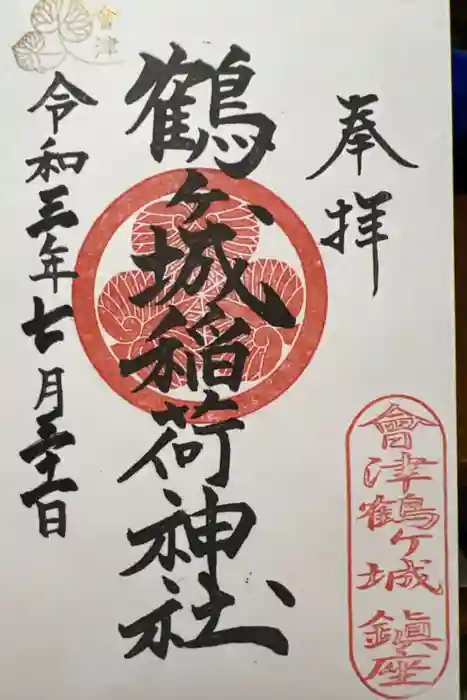 奉拝
鶴ヶ城稲荷神社
令和三年七月三十一日
會津
會津鶴ヶ城 鎮座